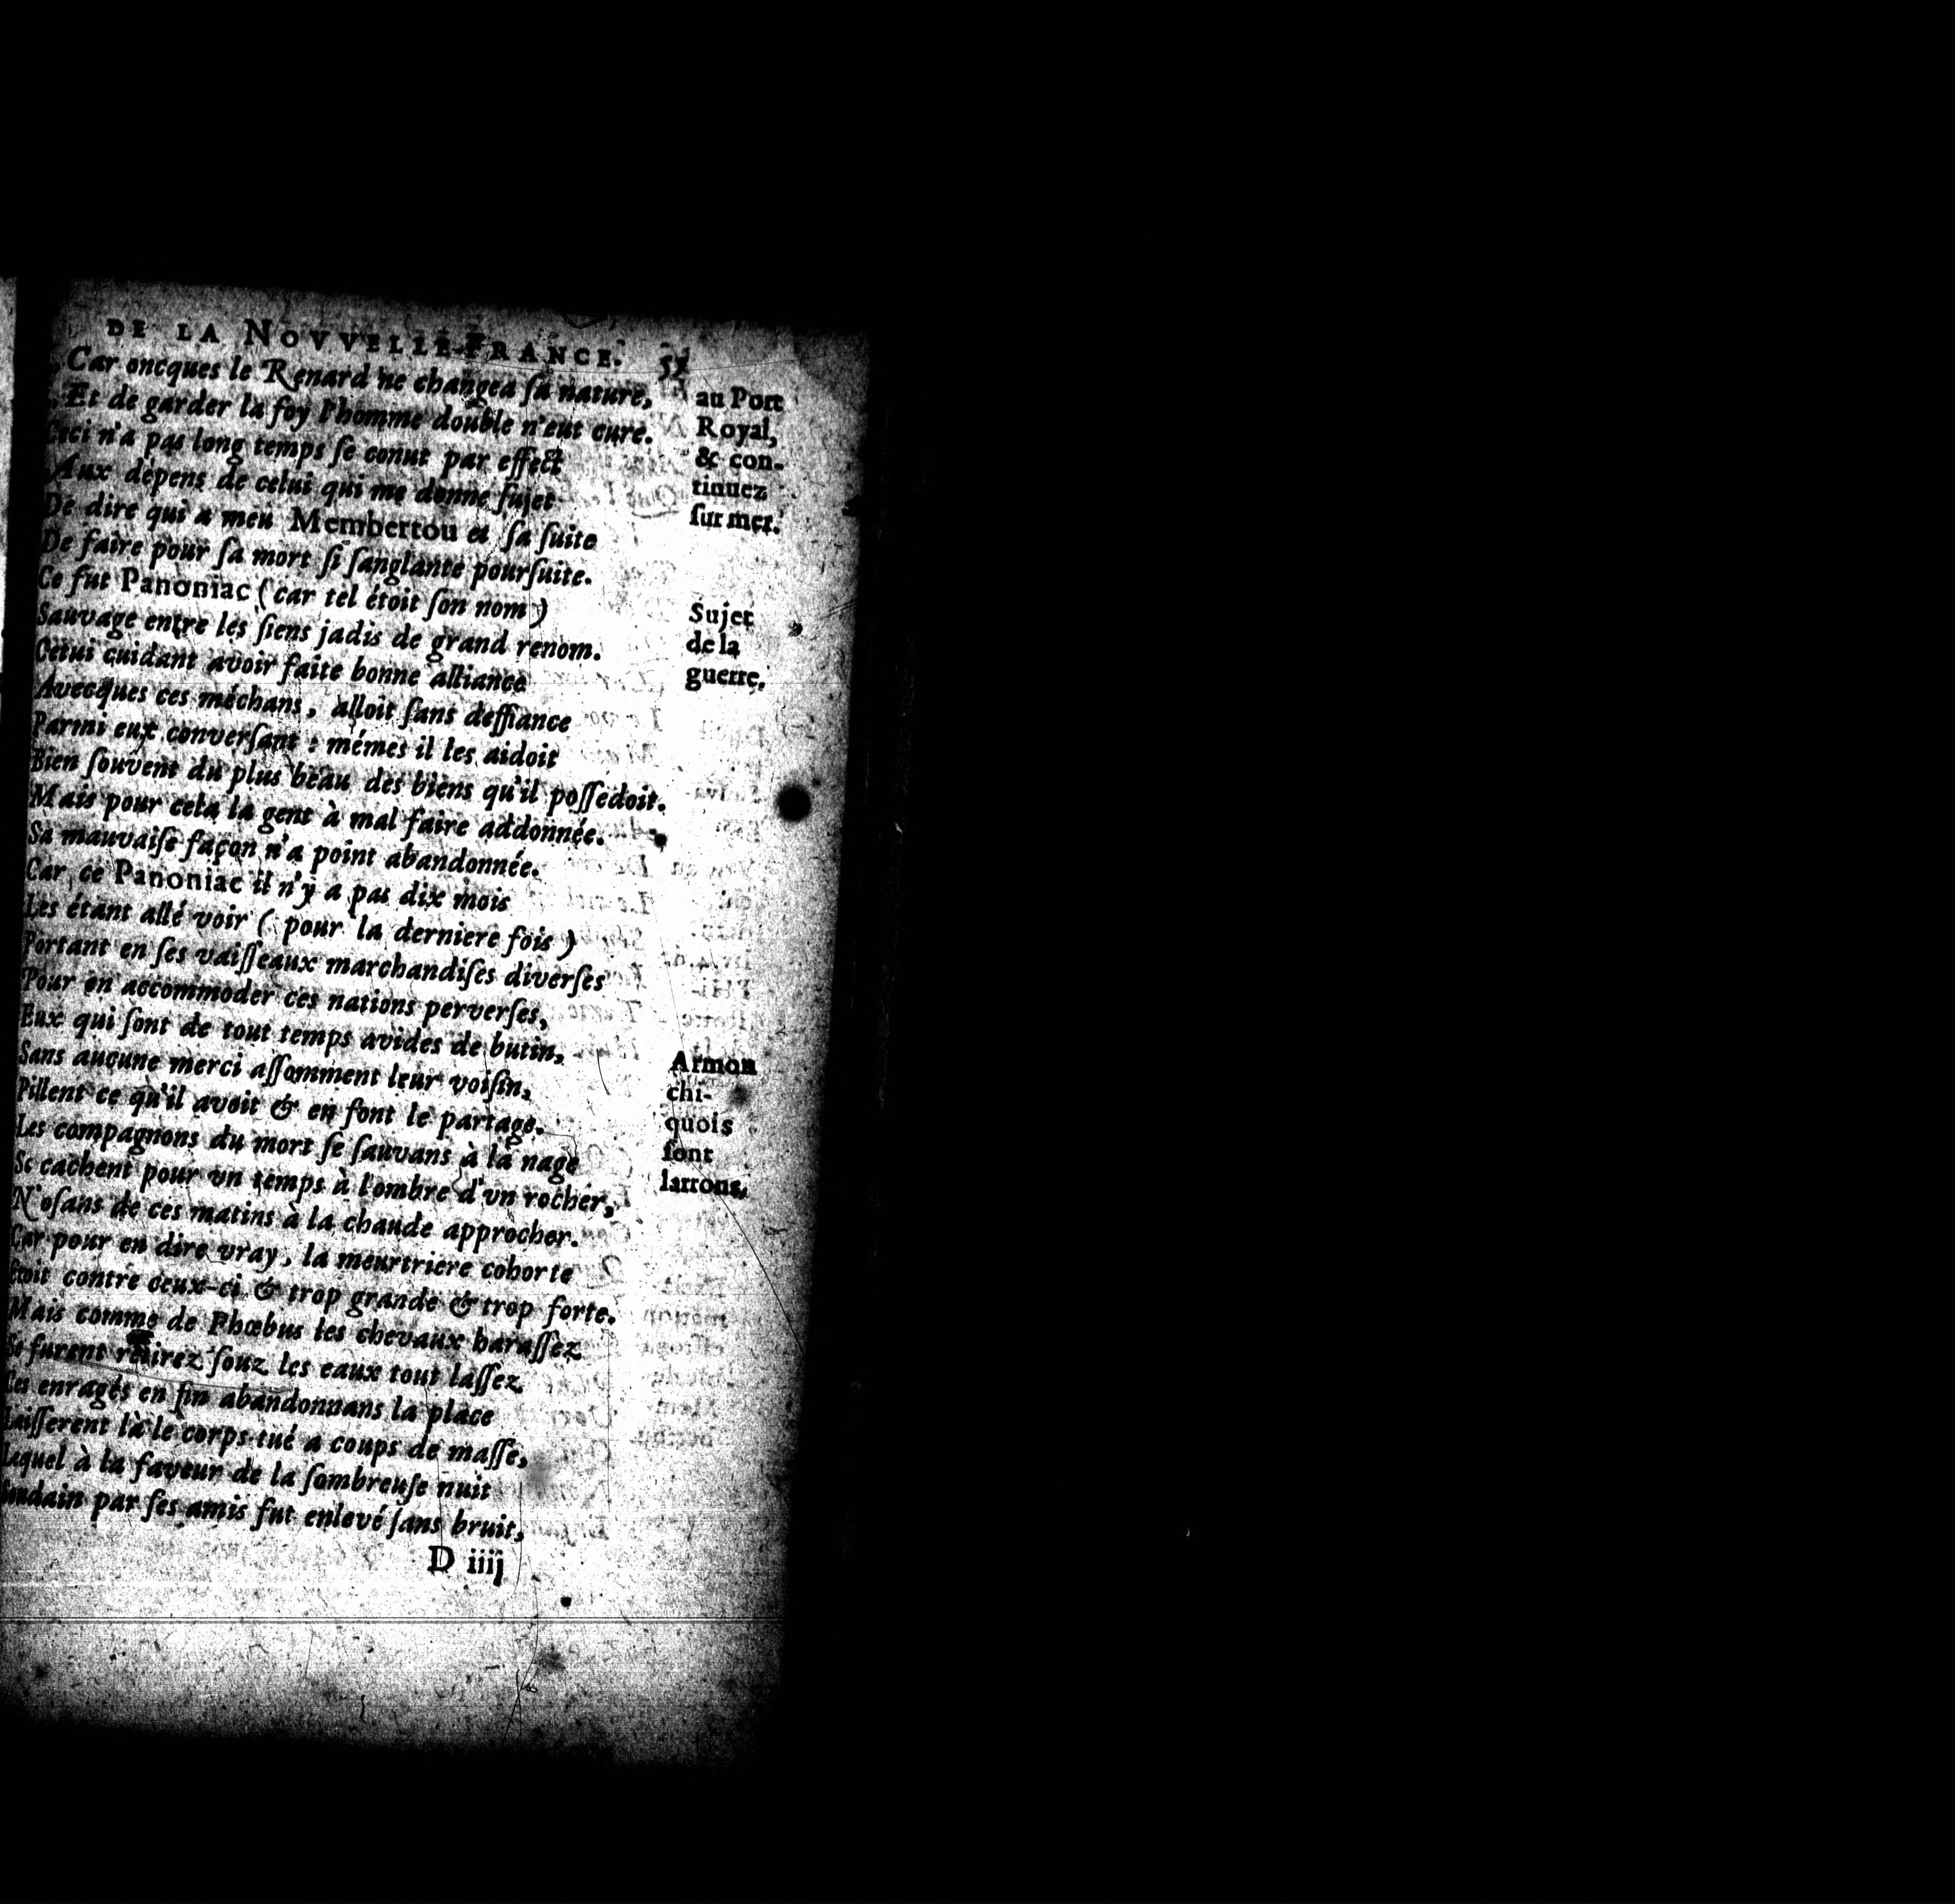 DE LA NOVVELLE-FRANCE. 55
Car oncques le Renard ne changea ſa nature,
Et de garder la foy l'homme double n'eut cure.
Ceci n'a pas long temps ſe conut par effect
Aux dépens de celui qui me donne ſujet
De dire qui a meu Membertou et ſa ſuite
De faire pour ſa mort ſi ſanglante pourſuite.
Ce fut Panoniac (car tel étoit ſon nom)
Sauvage entre les ſiens jadis de grand renom.
Cetui cuidant avoir faite bonne alliance
Avecques ces méchans, alloit ſans deffiance
Parmi eux converſant : mémes il les aidoit
Bien ſouvent du plus beau des biens qu'il poſſedoit.
Mais pour cela la gent à mal faire addonnée.
Sa mauvaiſe façon n'a point abandonnée.
Car ce Panoniac il n'y a pas dix mois
Les étant allé voir (pour la derniere fois)
Portant en ſes vaiſſeaux marchandiſes diverſes
Pour en accommoder ces nations perverſes,
Eux qui ſont de tout temps avides de butin,
Sans aucune merci aſſomment leur voiſin,
Pillent ce qu'il avoit & en font le partage.
Les compagnons du mort ſe ſauvans à la nage
Se cachent pour vn temps à l'ombre d'vn rocher,
N'oſans de ces matins à la chaude approcher.
Car pour en dire vray, la meurtriere cohorte
Etoit contre ceux-ci & trop grande & trop forte.
Mais comme de Phœbus les chevaux haraſſez
Se furent retirez ſouz les eaux tout laſſez
enragés en fin abandonnans la place
Laiſſerent là le corps tué a coups de maſſe,
Lequel à la faveur de la ſombreuſe nuit
Soudain par ſes amis fut enlevé ſans bruit,
D iiij
au Port
Royal,
& con-
tinuez
ſur mer.
Sujet
de la
guerre.
Armon
chi-
quois
ſont
larrons.